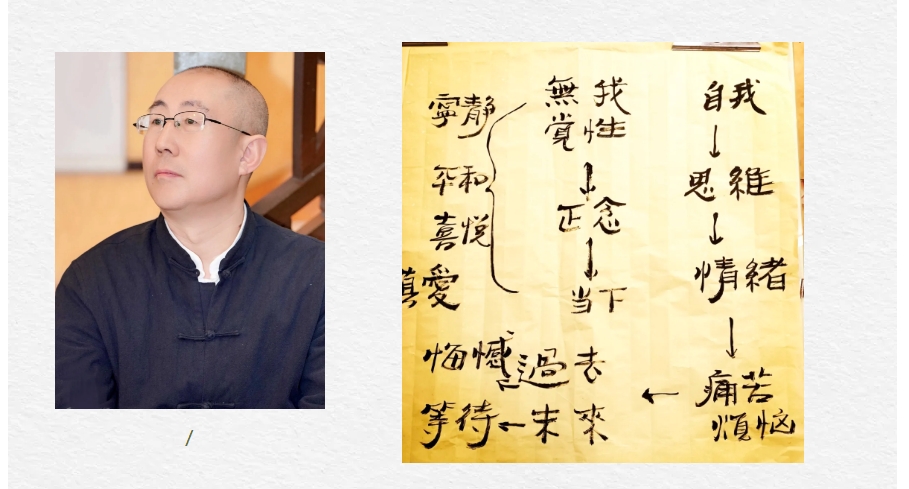 自我
↓
思維
↓
情緒
↓
痛苦
煩恼
←
無我
覚性
↓
正念
↓
当下
寧静
平和
喜悦
真愛
悔憾←過去
等待←未來
/